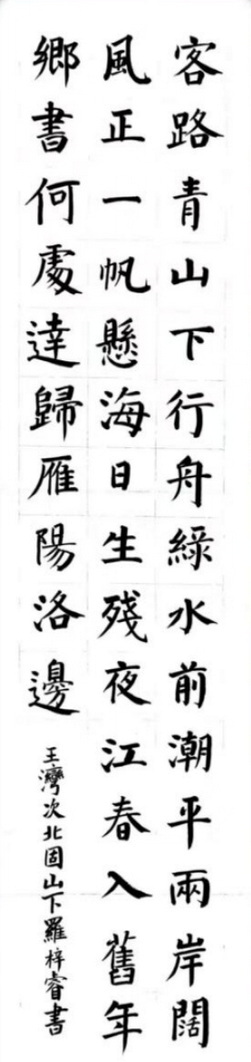 客路青山下行舟綠水前潮平兩岸闊
風正一帆懸海日生殘夜江春入舊年
鄉書何處達歸雁陽洛邊
王灣次北固山下羅梓睿書